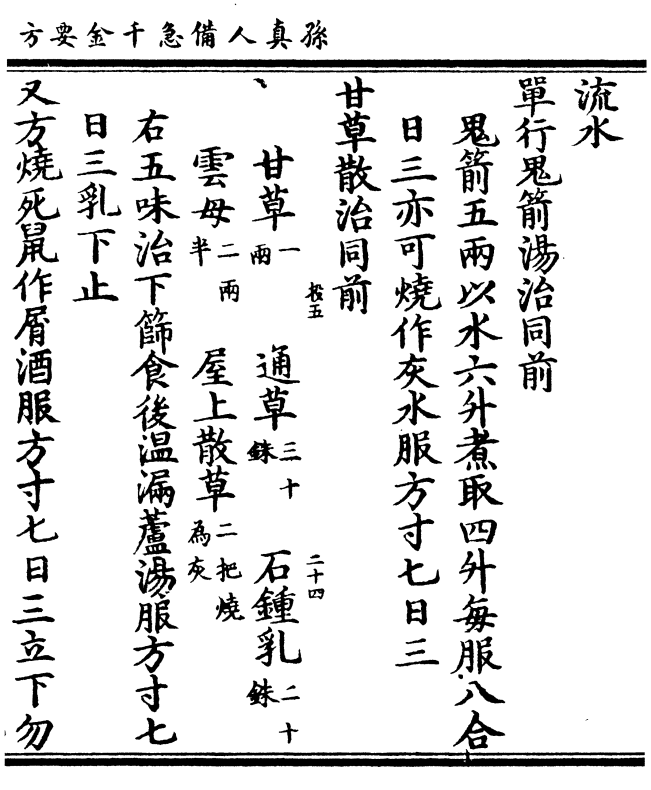 孫真人備急千金要方
流水
單行鬼箭湯治同前
鬼箭五兩以水六升煮取四升每服八合
日三亦可燒作灰水服方寸七日三
甘草散治同前
二十四
甘草一兩 通草三十銖 石鍾乳二十銖
雲母二兩半 屋上散草二把燒為灰
右五味治下篩食後温漏蘆湯服方寸七
日三乳下止
又方燒死鼠作屑酒服方寸七日三立下勿